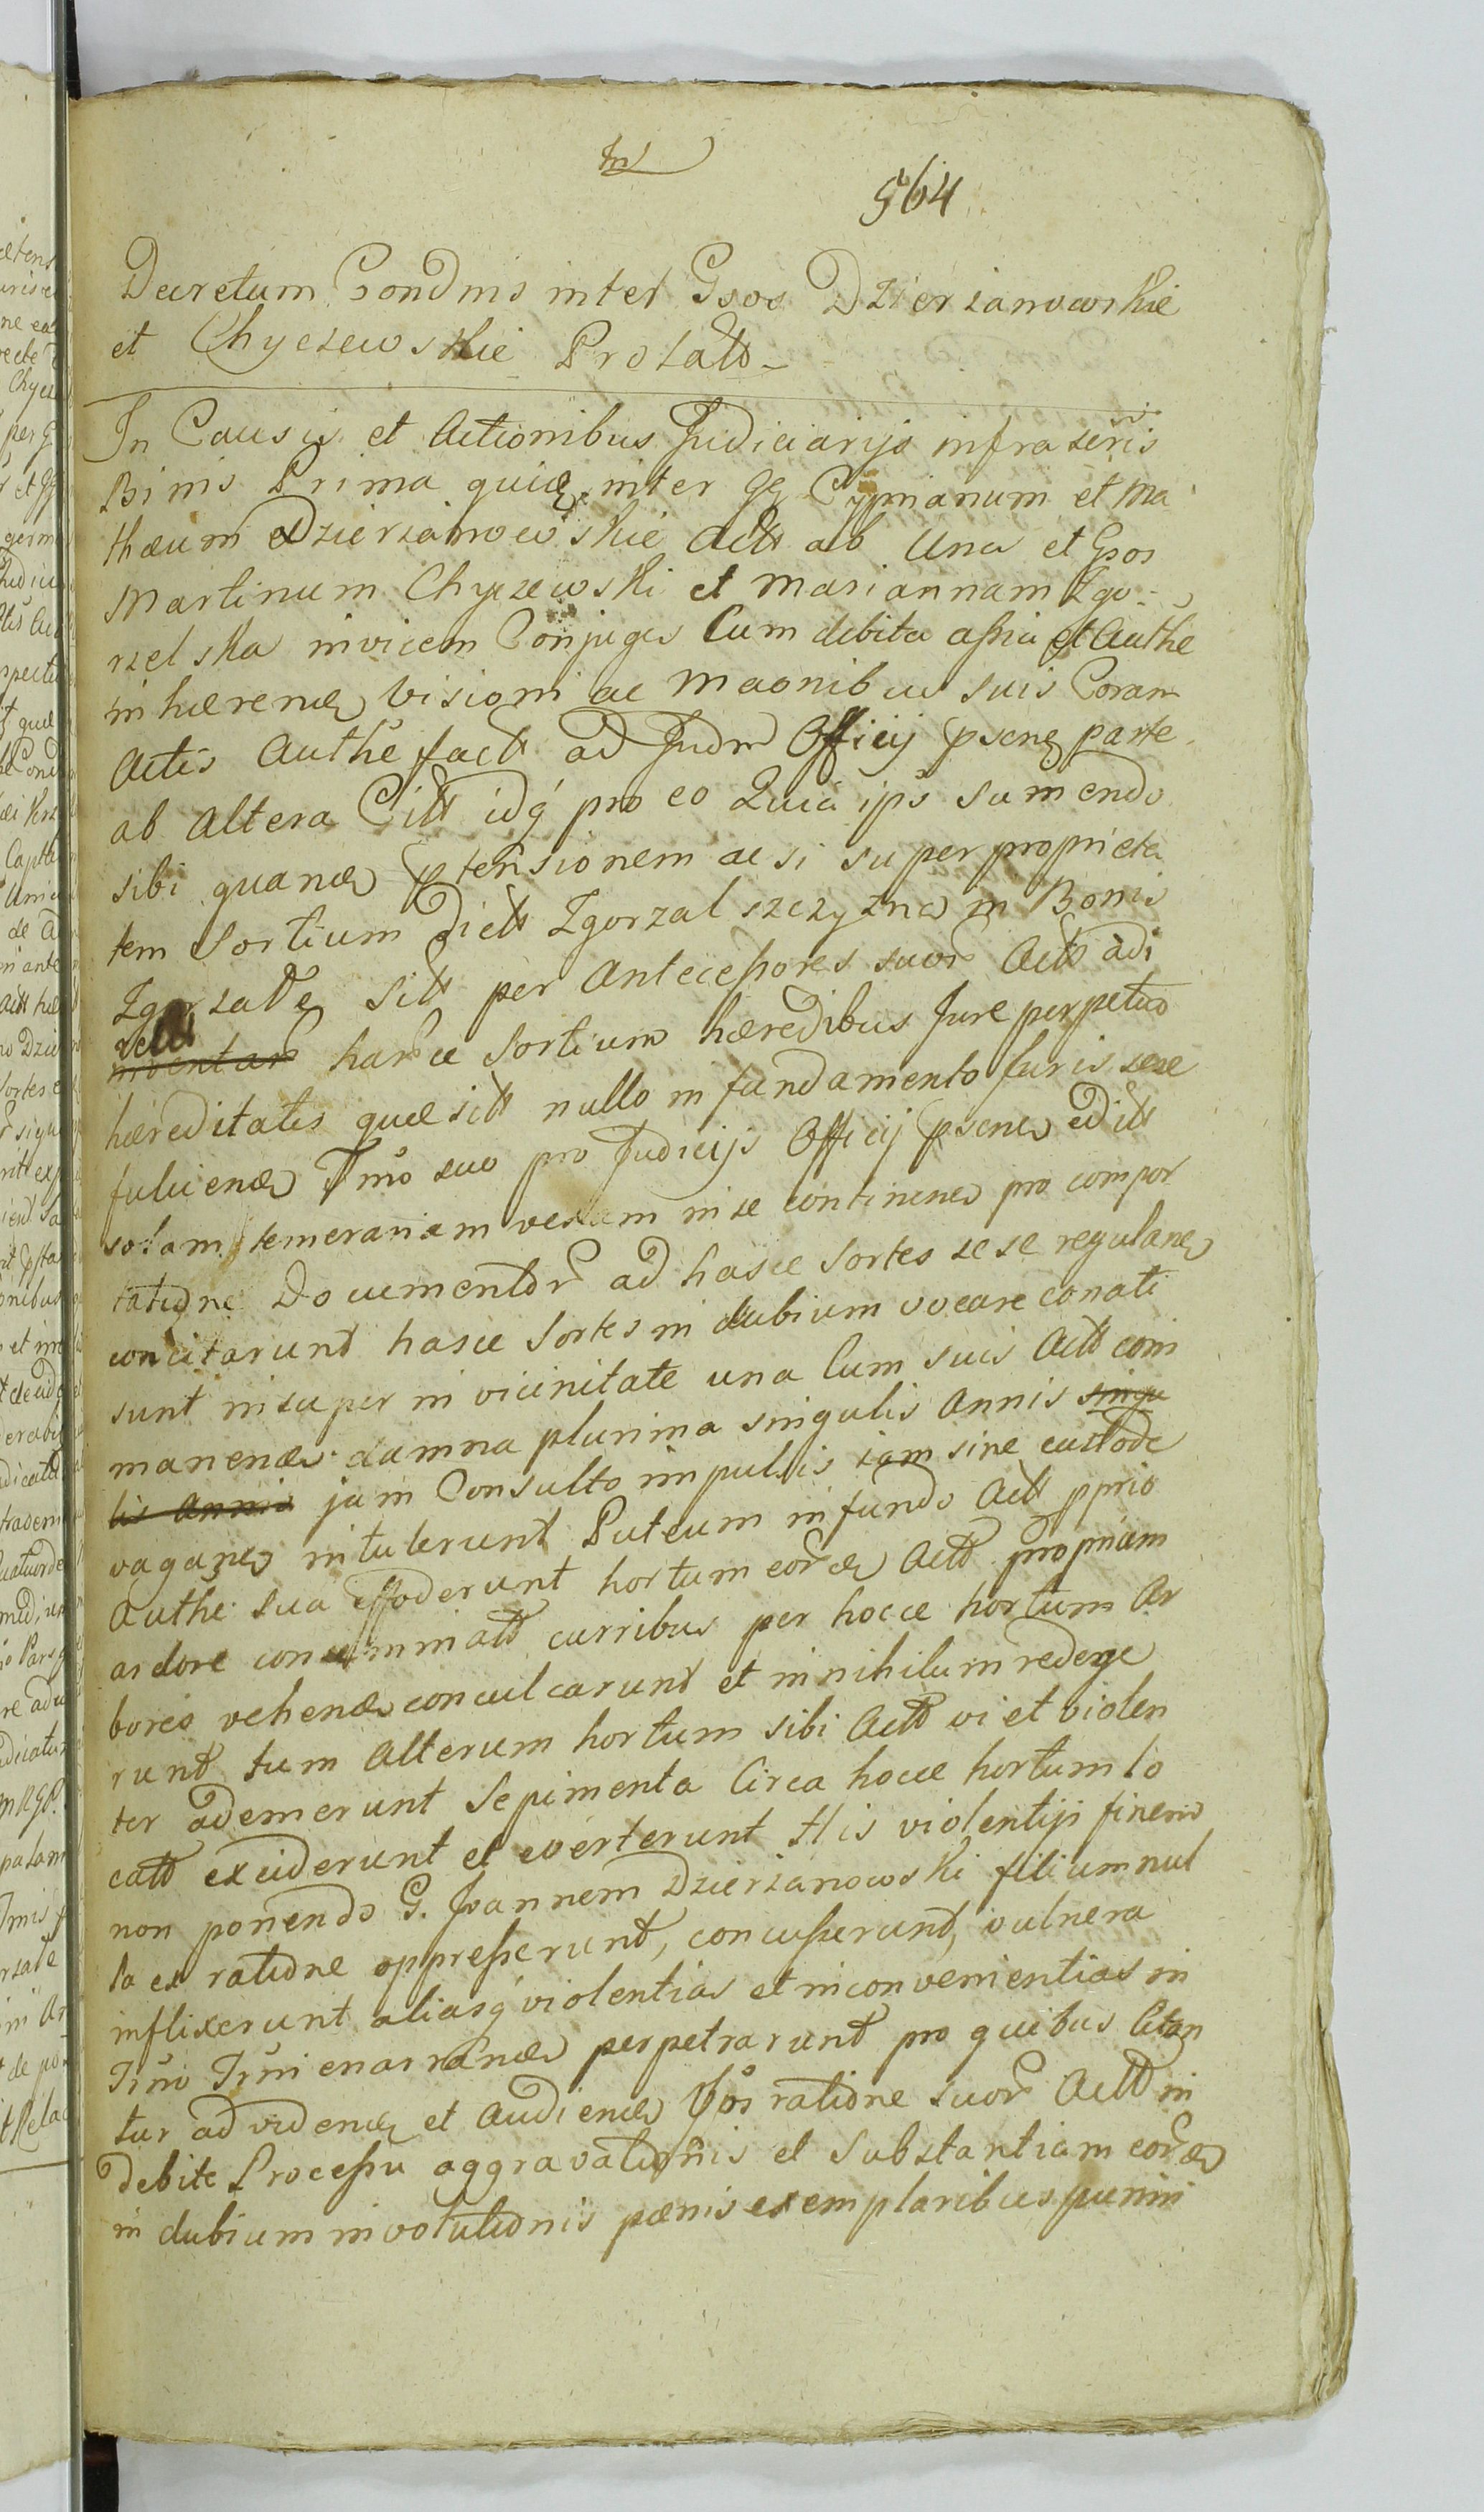 564
Decretum Condnis inter Gsos Dzierzanowskie
et Chyczewskie Prolatt
In Causis et Actionibus Judiciarijs infrascris
Binis Prima quidem inter GG Cyprianum et Ma
thæum Dzierzanowskie Actt ab Una et Gsos
Martinum Chyczewski et Mariannam Zgo
rzelska invicem Conjuges Cum debita assia et Authe
inhærend visioni ac maonibus suis Coram
Actis Authe fact ad Judm Officij psens parte
ab Altera Citt idq pro eo Quia ipsi sumendo
sibi quand ptensionem ac si super proprieta
tem Sortium dictt Zgorzalszczyzna in Bonis
Zgorzałe sitt per Antecessores suor Actt adi
vett harce Sortium hæredibus Jure perpetuo
hæreditatis quæsitt nullo in fundamento Juris sese
fulciend Tmo suo pro Judicijs Officij psens edict
solam temerariam vexam in se continens pro compor
tatione Documentor ad hasce Sortes se se regulans
concitarunt hasce Sortes in dubium vocare conati
sunt insuper in vicinitate una Cum suis Actt com
manend damna plurima singulis Annis singu
lis Annis jam Consulto impulsis iam sine custode
vagans intulerunt Puteum in fundo Actt pprio
Authe sua effoderunt hortum eord Actt propriam
ardore consummatt curribus per hocce hortum Ar
bores vehend conculcarunt et in nihilum redege
runt tum Alterum hortum sibi Actt vi et violen
ter ademerunt Sepimenta Circa hocce hortum lo
catt exciderunt et everterunt His violentijs finem
non ponendo G. Joannem Dzierzanowski filium nul
la ex ratione oppresserunt, concusserunt, vulnera
inflixerunt aliasq violentias et inconvenientias in
Tmo Tmi enarrand perpetrarunt pro quibus Citan
tur ad vidend et Audiend Ipos ratione suor Actt in
debite Processu aggravationis et Substantiam eord
in dubium involutionis pænis exemplaribus puniri